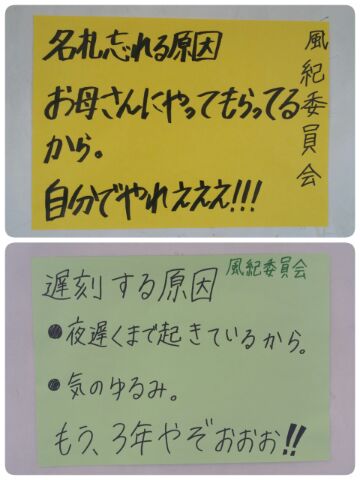 名札忘れる原因
風紀委員会
お母さんにやってもらってる
から。
自分でやれぇぇぇ!!!
遅刻する原因
風紀委員会
●夜遅くまで起きているから。
●気のゆるみ。
もう、3年やぞぉぉぉ!!